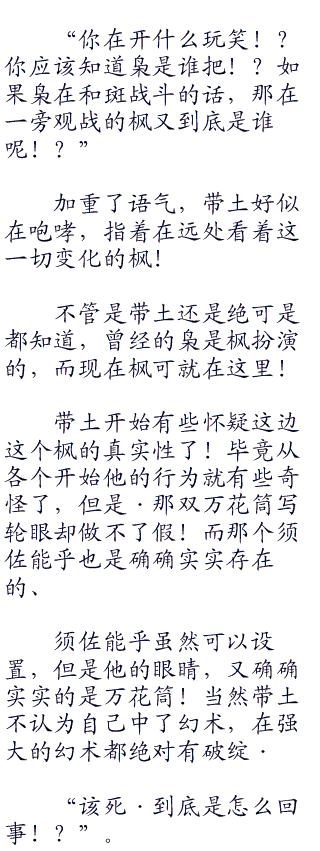 “你在开什么玩笑！？
你应该知道枭是谁把！？如
果枭在和斑战斗的话，那在
一旁观战的枫又到底是谁
呢！？”
加重了语气，带土好似
在咆哮，指着在远处看着这
一切变化的枫！
不管是带土还是绝可是
都知道，曾经的枭是枫扮演
的，而现在枫可就在这里！
带土开始有些怀疑这边
这个枫的真实性了！毕竟从
各个开始他的行为就有些奇
怪了，但是·那双万花筒写
轮眼却做不了假！而那个须
佐能乎也是确确实实存在
的、
须佐能乎虽然可以设
置，但是他的眼睛，又确确
实实的是万花筒！当然带土
不认为自己中了幻术，在强
大的幻术都绝对有破绽·
“该死·到底是怎么回
事！？”。